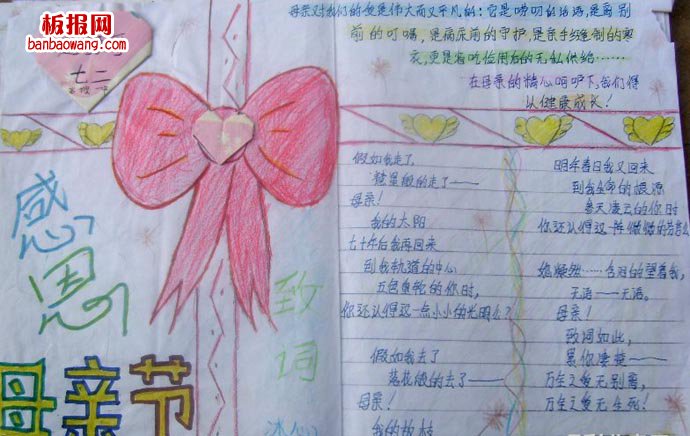 板报网
banbaowang.com
七二
感恩
母亲节
致词
冰心
母亲对我们的爱是伟大而又平凡的：它是唠叨的话语，是离别
前的叮嘱，是病床前的守护，是亲手缝制的寒
衣，更是省吃俭用后的无私供给……
在母亲的精心呵护下，我们得
以健康成长！
假如我走了，
彗星般的走了——
母亲！
我的太阳
七十年后我再回来
到我轨道的中心
五色重轮的你时，
你还认得这一点小小的光明么？
假如我去了
落花般的去了——
母亲！
我的故枝
明年春日我又回来
到我生命的根源
参天凌云的你时
你还认得这一阵微微的芳香么
她凝然……含泪的望着我，
无语——无语。
母亲！
致词如此，
累你凄楚——
万全之爱无别离，
万全之爱无生死！